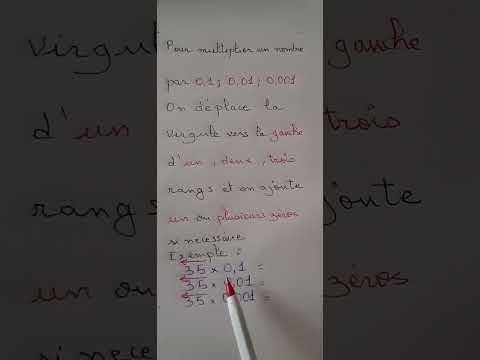 Pour multiplier un nombre
par 0,1 ; 0,01 ; 0,001
On déplace la
virgule vers la gauche
d'un, deux, trois
rangs et on ajoute
un ou plusieurs zéros
si necessaire
Exemple :
35 × 0,1 =
35 × 0,01 =
35 × 0,001 =